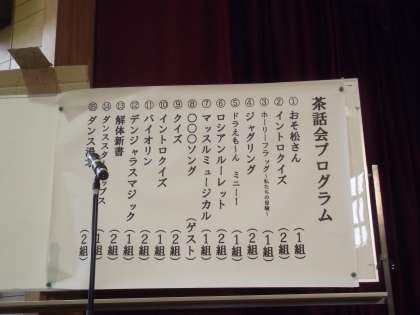 茶話会プログラム
① おそ松さん (1組)
② イントロクイズ (2組)
③ ホーリーフラッグ ~私たちの冒険~ (1組)
④ ジャグリング (2組)
⑤ ドラえも~ん ミニー! (1組)
⑥ ロシアンルーレット (2組)
⑦ マッスルミュージカル (1組)
⑧ 〇〇〇ソング (ゲスト)
⑨ クイズ (2組)
⑩ イントロクイズ (1組)
⑪ バイオリン (2組)
⑫ デンジャラスマジック (1組)
⑬ 解体新書 (2組)
⑭ ダンスス (1組)
⑮ ダンス (2組)